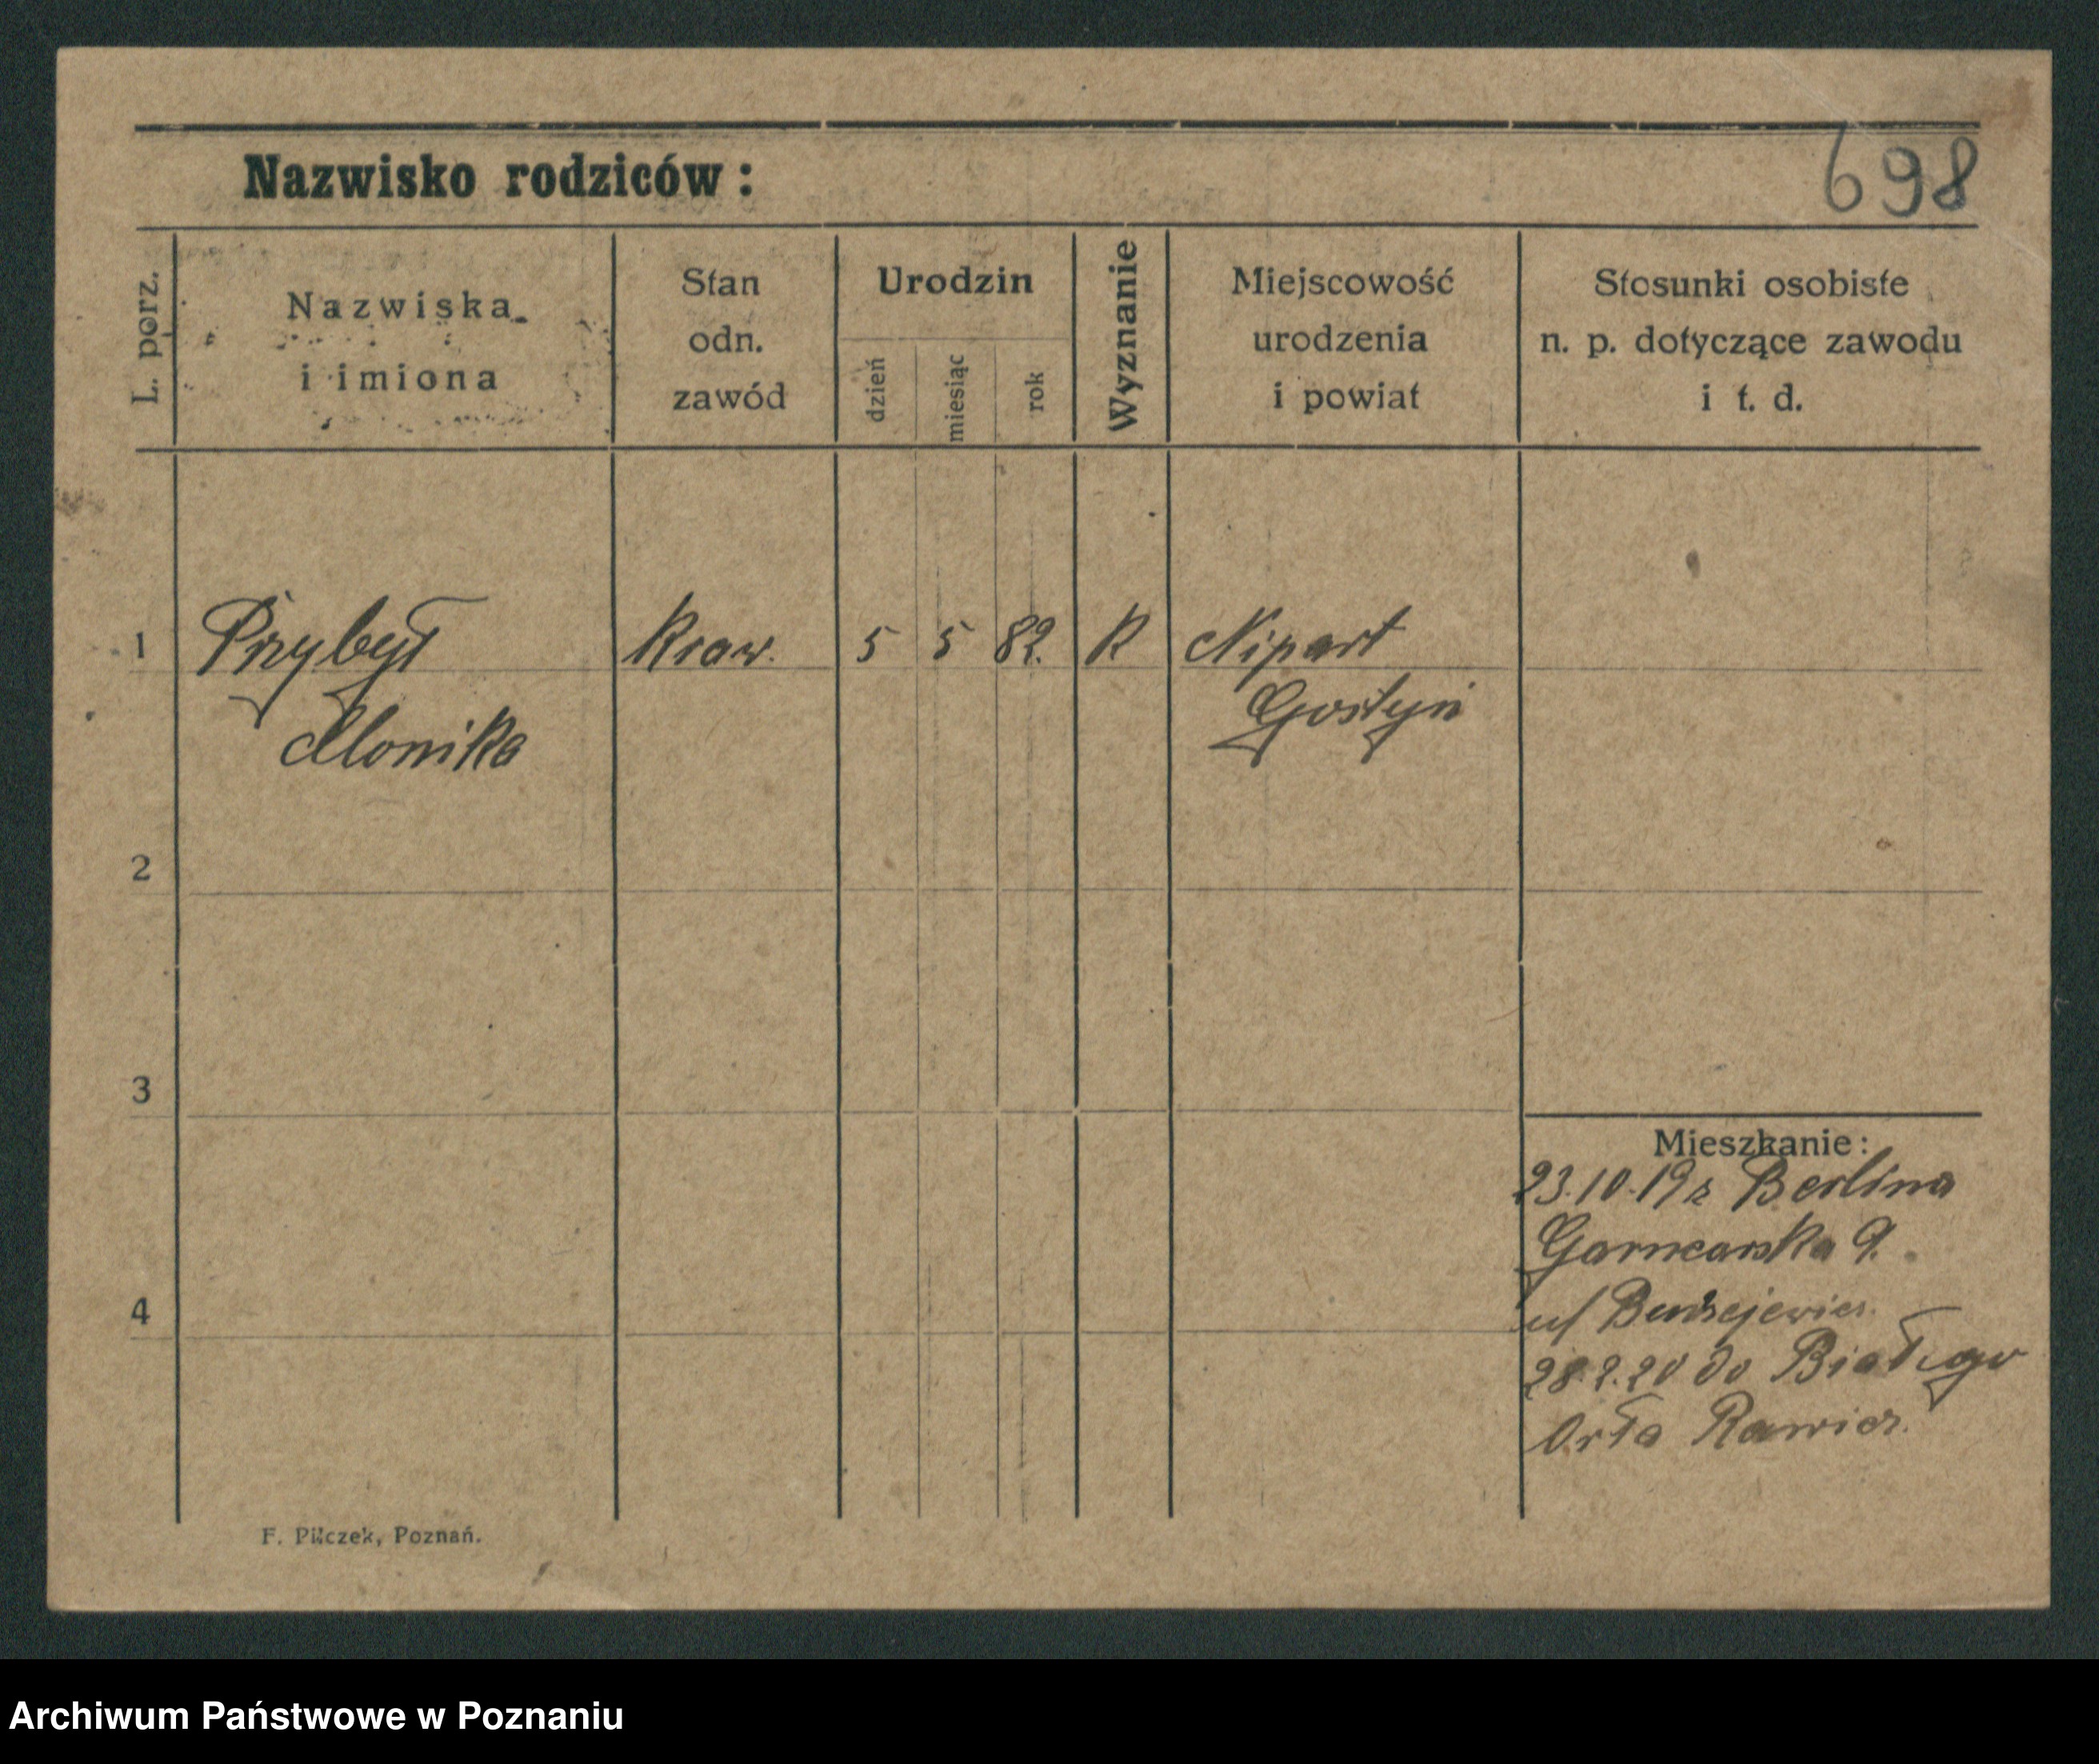 698
Nazwisko rodziców :
L. porz.
Nazwiska
i imiona
Stan
odn.
zawód
Urodzin
dzień
miesiąc
rok
Wyznanie
Miejscowość
urodzenia
i powiat
Stosunki osobiste
n. p. dotyczące zawodu
i t. d.
1 Przybył Kraw. 5 5 82. K Nipart
Monika Gostyń
2
3
4
Mieszkanie :
23.10.19 z Berlina
Garncarska 9.
u/
28.2.20 do Białego
Orła Rawicz.
F. Pilczek, Poznań.
Archiwum Państwowe w Poznaniu